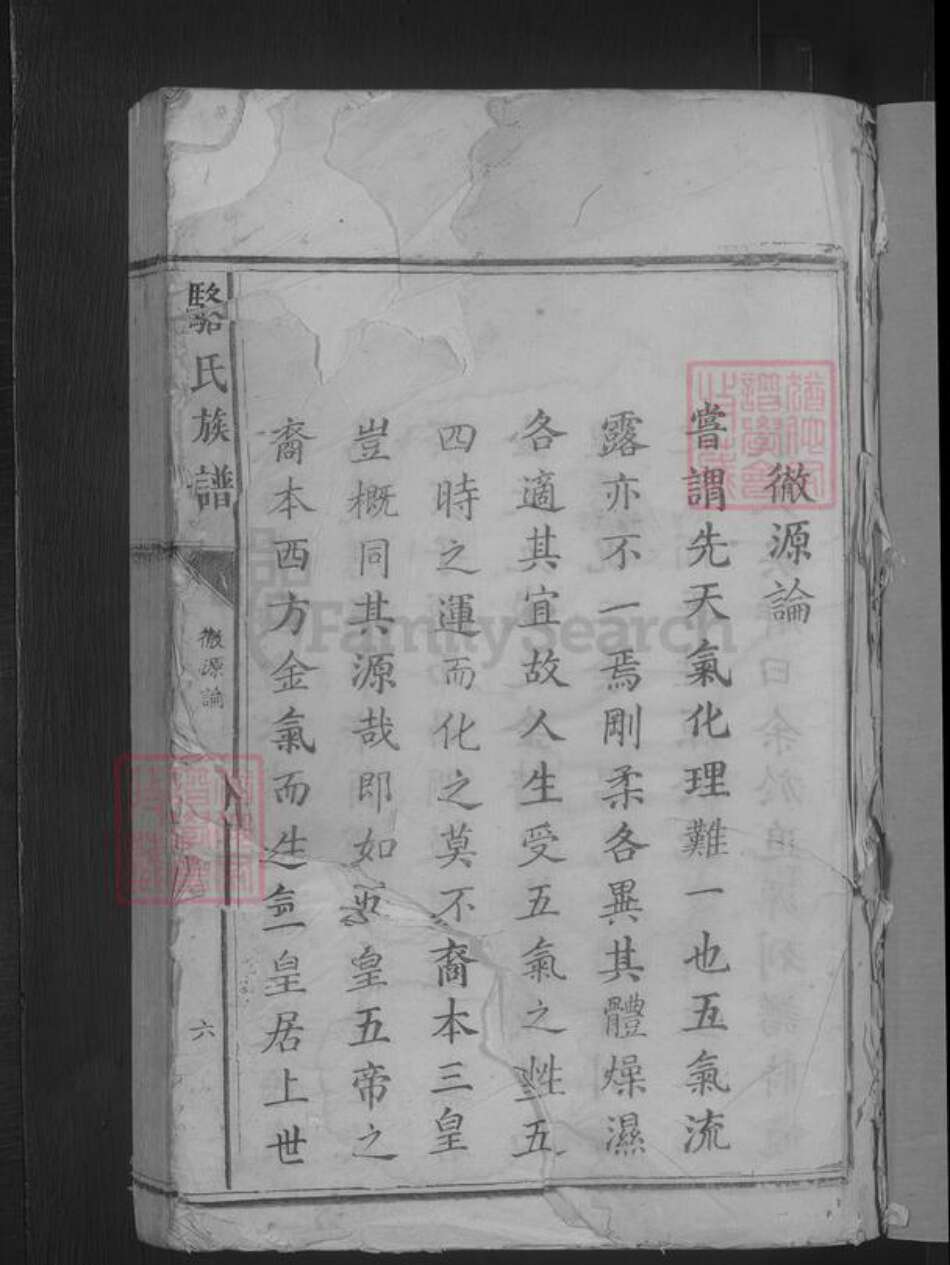 徹源論
嘗謂先天氣化理難一也五氣流
露亦不一焉剛柔各異其體燥濕
各適其宜故人生受五氣之性五
四時之運而化之莫不裔本三皇
豈概同其源哉即如 皇五帝之
裔本西方金氣而生 皇居上世
駱氏族譜
徹源論
六
FamilySearch